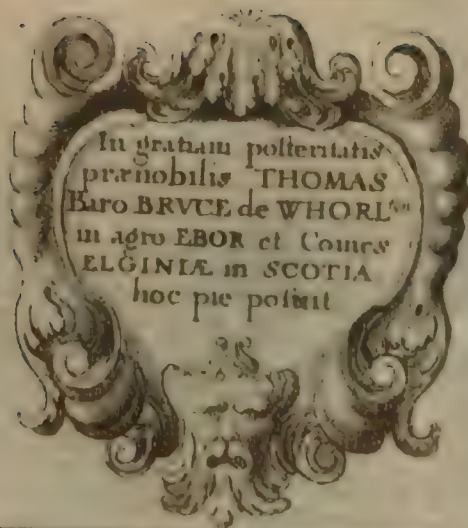 In gratiam posteritatis
prænobilis THOMAS
Baro BRVCE de WHORL
in agro EBOR et Comes
ELGINIÆ in SCOTIA
hoc pie posuit